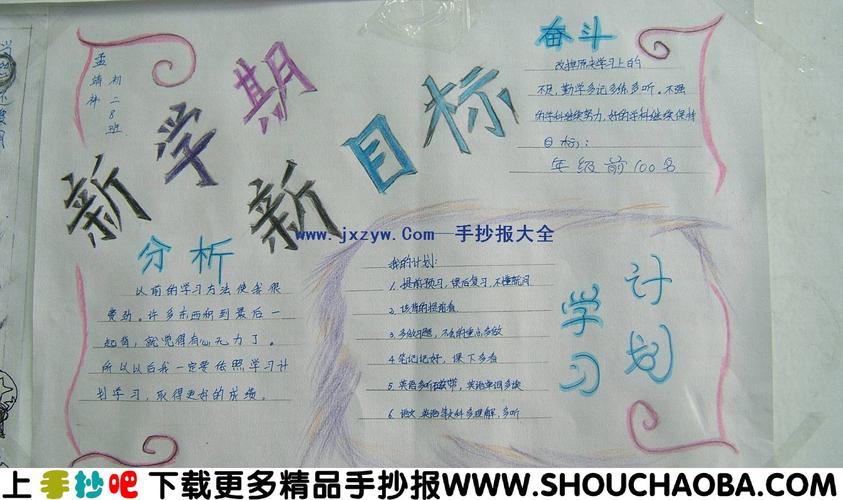 新学期
新目标
孟靖林
初二8班
奋斗
改掉原来学习上的
不足,勤学多记多练多听。不强
的学科继续努力,好的学科继续保持
目标:
年级前100名
www.jxzyw.Com 手抄报大全
分析
以前的学习方法使我很
费劲。许多东西积到最后一
起背,就觉得有心无力了。
所以以后我一定要依照学习计
划学习,取得更好的成绩。
学习
计划
我的计划:
1. 提前预习,课后复习,不懂就问
2. 该背的提前看
3. 多做习题,不会的重点多做
4. 笔记记好,课下多看
5. 英语多听磁带,英语单词多读
6. 语文 英语等文科多理解,多听
上手抄吧 下载更多精品手抄报WWW.SHOUCHAOBA.COM